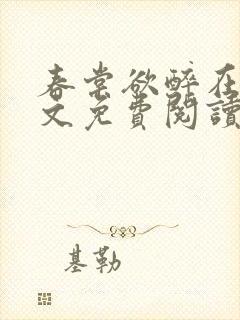 春棠欲醉在
文免費閱讀
基勒